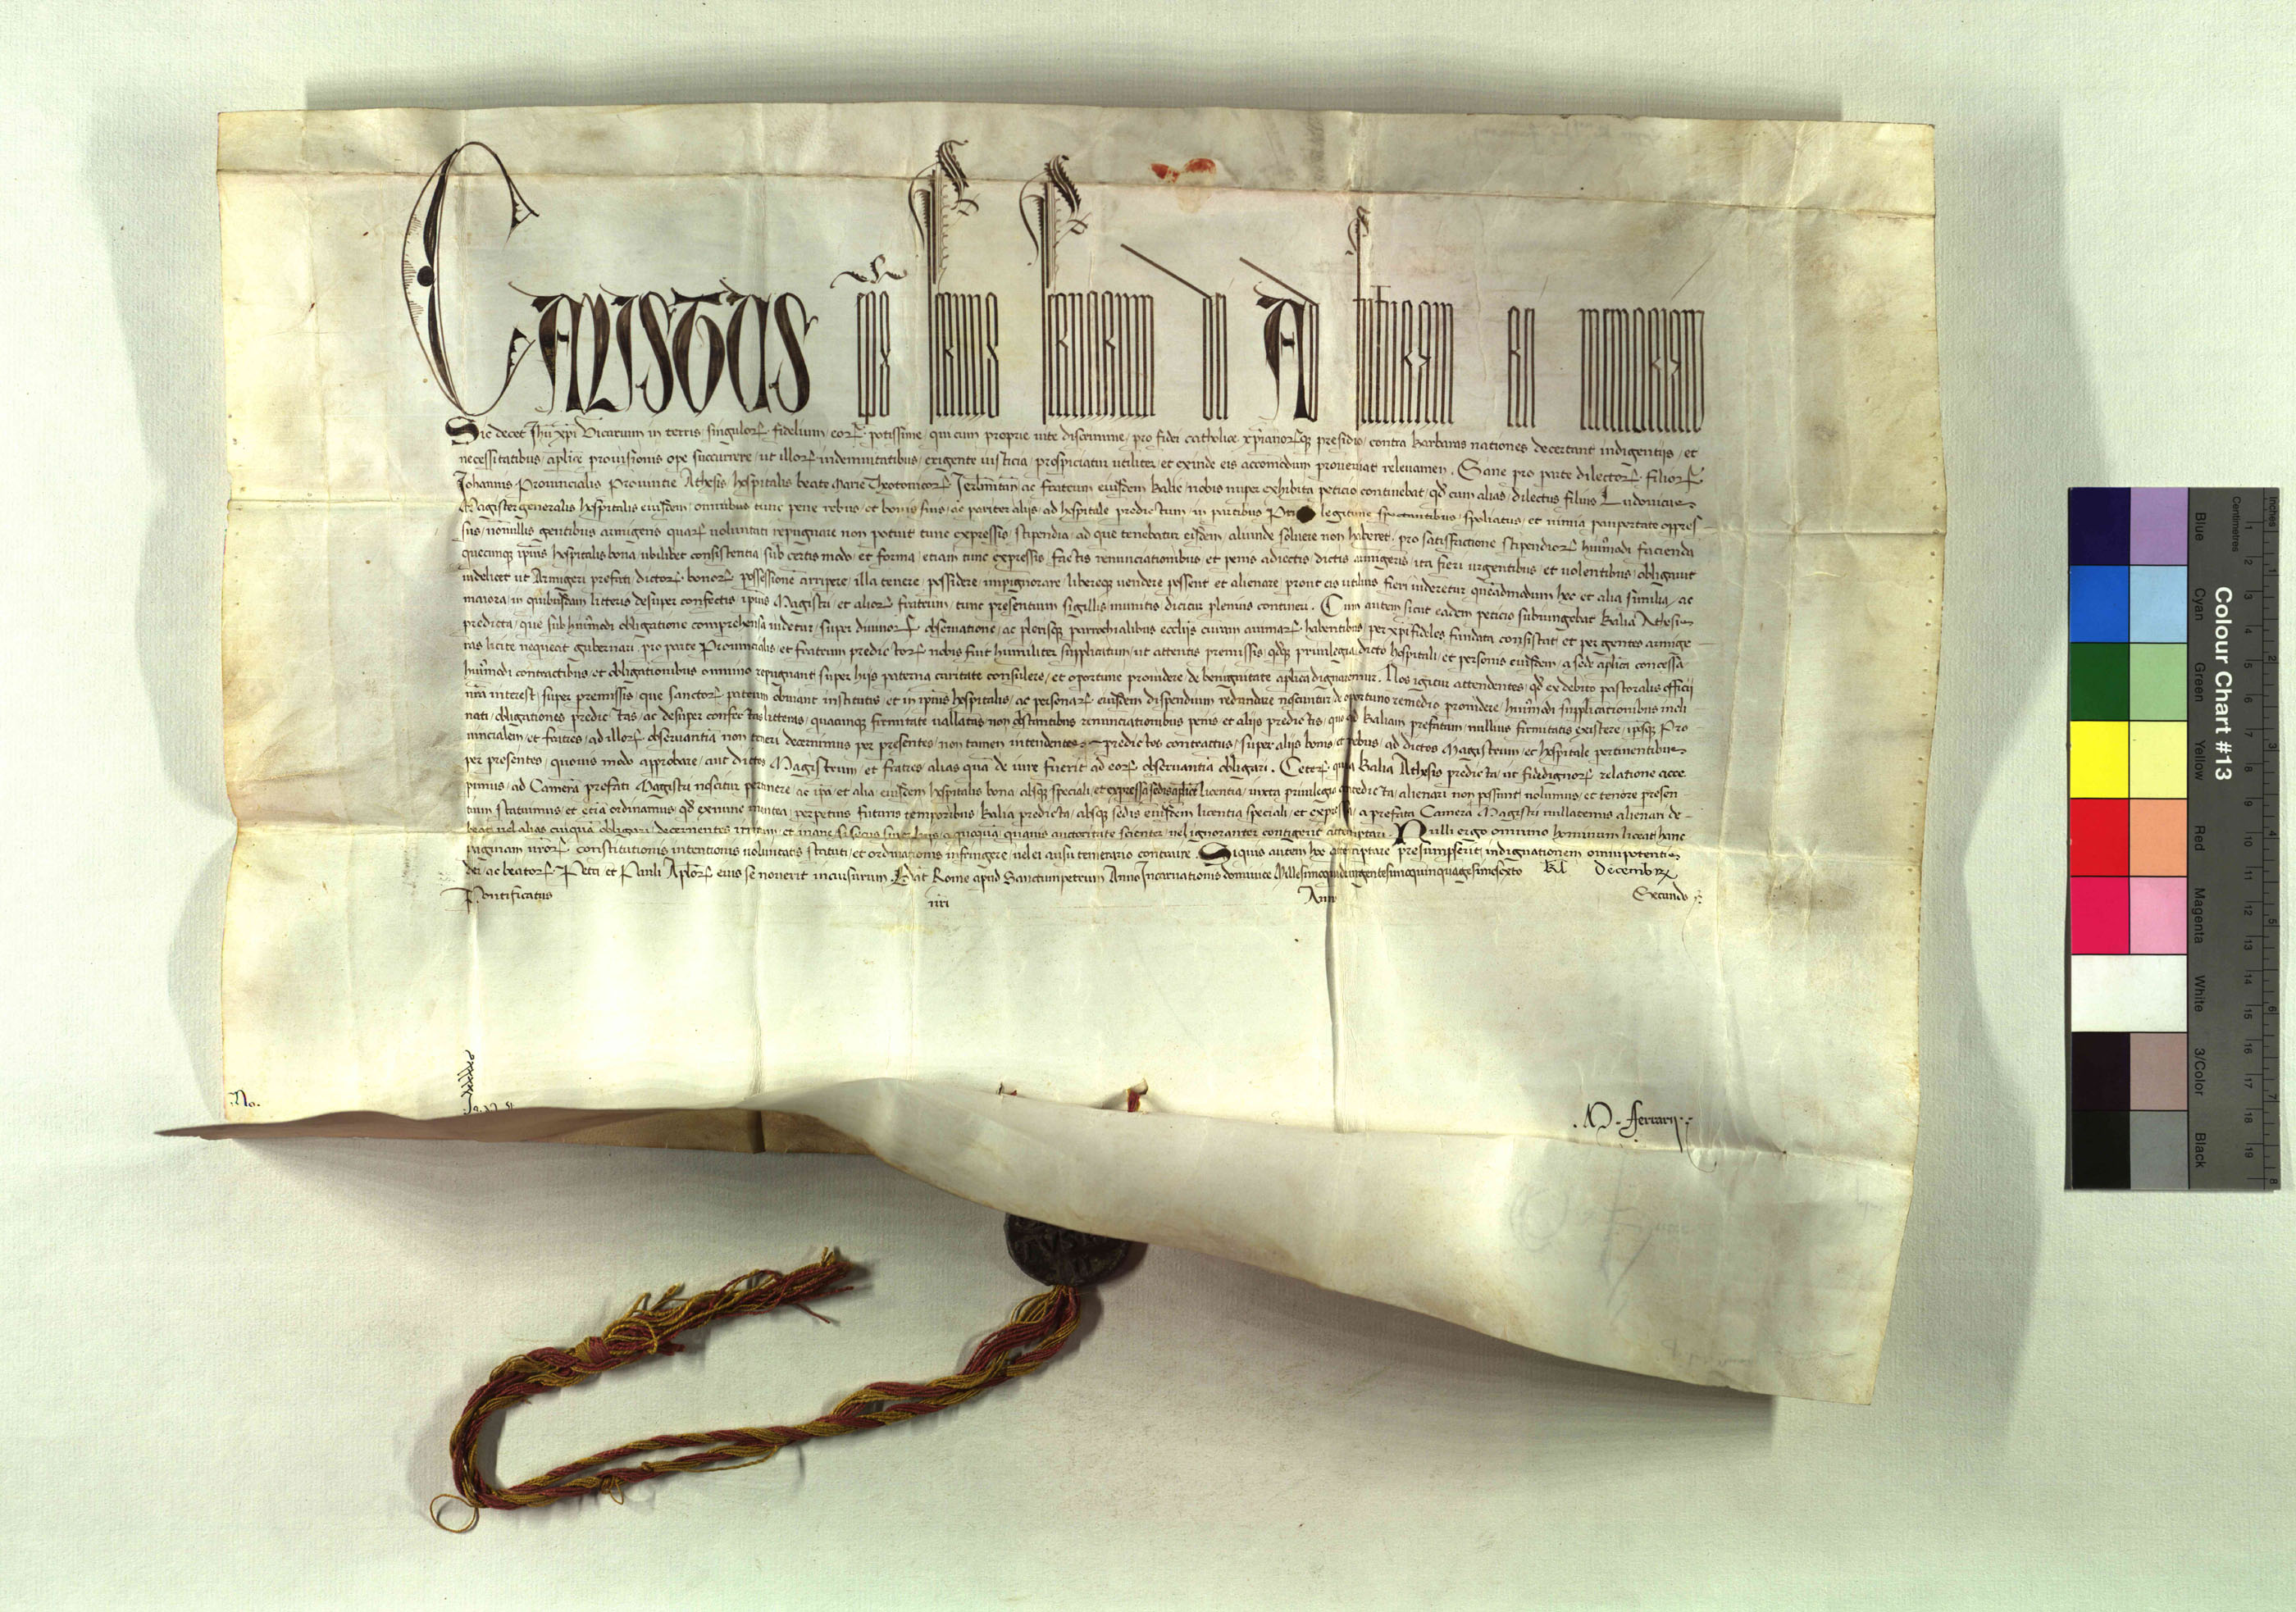 Calistus ep̄s seruus seruorum dei Ad futuram rei memoriam
Sic decet Ih̄u xp̄i Vicarium in terris singulorꝝ fidelium eorꝝ potissime qui cum proprie uite discrimine pro fidei catholice xp̄ianorꝝqꝫ presidio contra barbaras nationes decertant indigentijs et
necessitatibus ap̄lice prouisionis ope succurrere ut illorꝝ indemnitatibus exigente iusticia prospiciatur utiliter et exinde eis accomodum proueniat releuamen. Sane pro parte dilectorꝝ filiorꝝ
Johannis Prouincialis Prouintie Athesis hospitalis beate Marie Theotonicorꝝ Jerlimitan̄ ac fratrum eiusdem Balie nobis nuper exhibita peticio continebat qd̄ cum alias dilectus filius Ludouicus
Magister generalis hospitalis eiusdem omnibus tunc pene rebus et bonis suis ac pariter alijs ad hospitale predictum in partibus legitime spectantibus spoliatus et nimia paupertate oppres-
sus nonnullis gentibus armigeris quarꝝ voluntati repugnare non potuit tunc expressis stipendia ad que tenebatur eisdem aliunde soluere non haberet pro satisfactione stipendiorꝝ huiusmodi facienda
quecunqꝫ ipsius hospitalis bona ubilibet consistentia sub certis modo et forma etiam tunc expressis factis renunciationibus et penis adiectis dictis armigeris ita fieri urgentibus et uolentibus obligauit
uidelicet ut Armigeri prefati dictorꝝ bonorꝝ possessionē arripere illa tenere possidere impignorare libereqꝫ uendere possent et alienare prout eis utilius fieri uideretur quēadmodum hec et alia similia ac
maiora in quibusdam litteris desuper confectis ipsius Magistri et aliorꝝ fratrum tunc presentium sigillis munitis dicitur plenius contineri. Cum autem sicut eadem peticio subiungebat Balia Athesis
predicta que sub huiusmodi obligatione comprehensa uidetur super diuinorꝝ obseruatione ac plerisqꝫ parrochialibus eccl̄ijs curam animarꝝ habentibus per xp̄ifideles fundata consistat et per gentes armige-
ras licite nequeat gubernari pro parte Prouincialis et fratrum predictorꝝ nobis fuit humiliter supplicatum ut attentis premissis qd̄qꝫ priuilegia dicto hospitali et personis eiusdem a sede ap̄lica concessa
huiusmodi contractibus et obligationibus omnino repugnant super hijs paterna caritate consulere et oportune prouidere de benignitate ap̄lica dignaremur. Nos igitur attendentes qd̄ ex debito pastoralis officij
nr̄a interest super premissis que sanctorꝝ patrum obuiant institutis et in ipsius hospitalis ac personarꝝ eiusdem dispendium redundare noscuntur de oportuno remedio prouidere huiusmodi supplicationibus incli-
nati obligationes predictas ac desuper confectas litteras quacunqꝫ firmitate uallatas non obstantibus renunciationibus penis et alijs predictis quo ad Baliam prefatam nullius firmitatis existere ipsosqꝫ Pro-
uincialem et fratres ad illorꝝ obseruantiā non teneri decernimus per presentes non tamen intendentes predictos contractus super alijs bonis et rebus ad dictos Magistrum et hospitale pertinentibus
per presentes quouis modo approbare aut dictos Magistrum et fratres alias quā de iure fuerit ad eorꝝ obseruantiā obligari. Ceterꝝ quia Balia Athesis predicta ut fidedignorꝝ relatione acce-
pimus ad Camerā prefati Magistri noscitur pertinere ac ip̄a et alia eiusdem hospitalis bona absqꝫ speciali et expressa sedis ap̄lice licentia iuxta priuilegia predicta alienari non possunt uolumus et tenore presen-
tium statuimus et etiā ordinamus qd̄ exnunc inantea perpetuis futuris temporibus Balia predicta absqꝫ sedis eiusdem licentia speciali et expressa a prefata Camera Magistri nullatenus alienari de-
beat uel alias cuiquā obligari decernentes irritum et inane si secus super hijs a quoquā quauis auctoritate scienter uel ignoranter contigerit attemptari. Nulli ergo omnino hominum liceat hanc
paginam nr̄orꝝ constitutionis intentionis uoluntatis statuti et ordinationis infringere uel ei ausu temerario contraire. Siquis autem hoc attemptare presumpserit indignationem omnipotentis
dei ac beatorꝝ Petri et Pauli Ap̄lorꝝ eius se nouerit incursurum. Dat Rome apud Sanctumpetrum Anno Incarnationis dominice Millesimoquadringentesimoquinquagesimosexto kl̄ Decembrꝫ
Pontificatus nr̄i Anno Secundo
No.
N. ferrarij